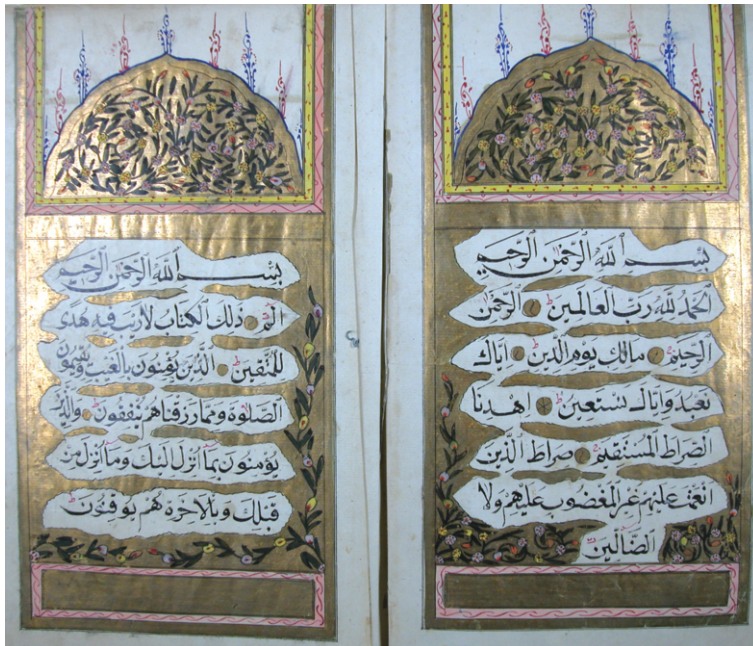 بسم الله الرحمن الرحيم
الحمد لله رب العالمين الرحمن
الرحيم مالك يوم الدين اياك
نعبد واياك نستعين اهدنا
الصراط المستقيم صراط الذين
انعمت عليهم غير المغضوب عليهم ولا
الضالين
بسم الله الرحمن الرحيم
الم ذلك الكتاب لا ريب فيه هدى
للمتقين الذين يؤمنون بالغيب ويقيمون
الصلوة ومما رزقناهم ينفقون والذين
يؤمنون بما انزل اليك وما انزل من
قبلك وبالاخرة هم يوقنون